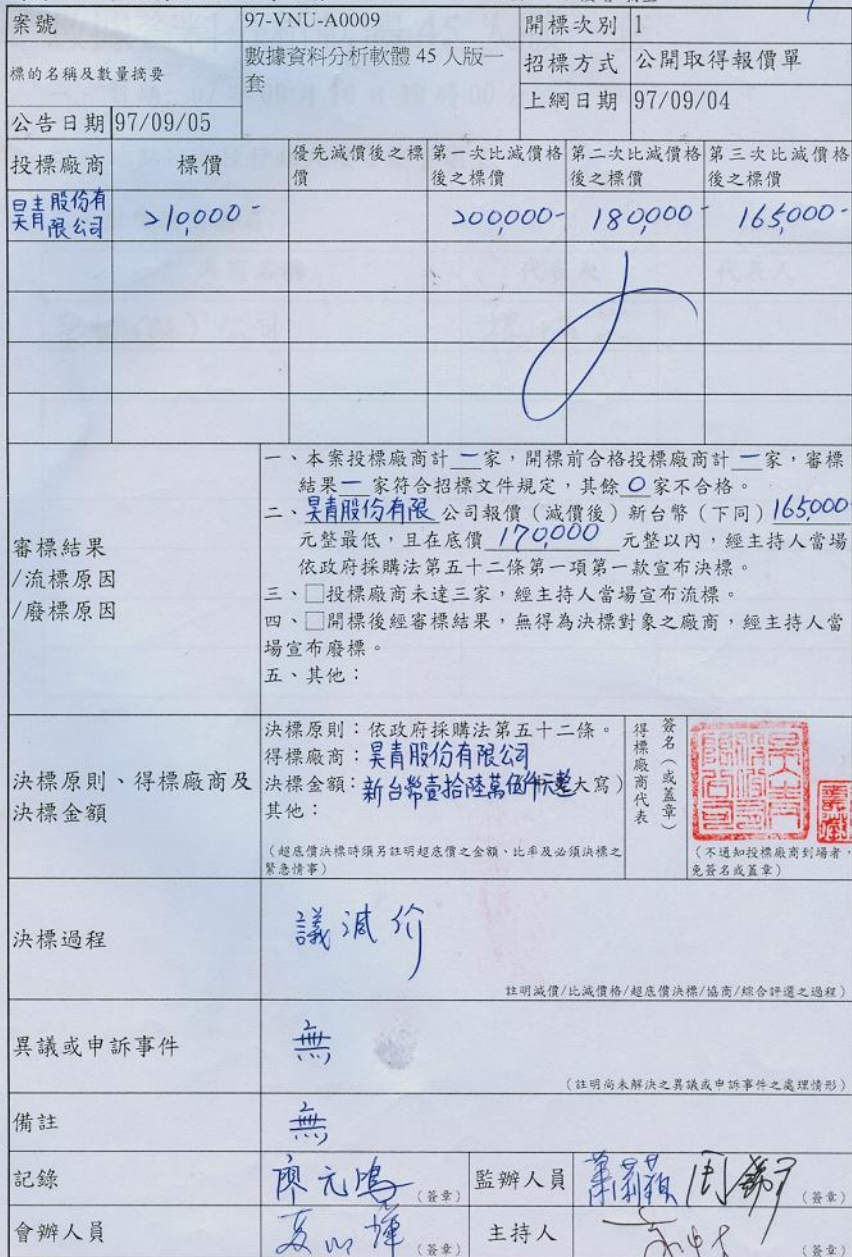 案號 97-VNU-A0009 開標次別 1
標的名稱及數量摘要 數據資料分析軟體 45 人版一
套
招標方式 公開取得報價單
上網日期 97/09/04
公告日期 97/09/05
投標廠商 標價 優先減價後之標 第一次比減價格 第二次比減價格 第三次比減價格
價 後之標價 後之標價 後之標價
昊青股份有
限公司 210,000- 200,000- 180,000- 165,000-
審標結果
/流標原因
/廢標原因
一、本案投標廠商計一家，開標前合格投標廠商計一家，審標
結果一家符合招標文件規定，其餘0家不合格。
二、昊青股份有限公司報價（減價後）新台幣（下同）165,000-
元整最低，且在底價 170,000 元整以內，經主持人當場
依政府採購法第五十二條第一項第一款宣布決標。
三、□投標廠商未達三家，經主持人當場宣布流標。
四、□開標後經審標結果，無得為決標對象之廠商，經主持人當
場宣布廢標。
五、其他：
決標原則、得標廠商及
決標金額
決標原則：依政府採購法第五十二條。
得標廠商：昊青股份有限公司
決標金額：新台幣壹拾陸萬伍仟元整大寫）
其他：
（超底價決標時須另註明超底價之金額、比率及必須決標之
緊急情事）
得標廠商代表
簽名（或蓋章）
（不通知投標廠商到場者，
免簽名或蓋章）
決標過程 議減价
註明減價/比減價格/超底價決標/協商/綜合評選之過程）
異議或申訴事件 無
（註明尚未解決之異議或申訴事件之處理情形）
備註 無
記錄 廖元鴻（簽章） 監辦人員 （簽章）
會辦人員 （簽章） 主持人 （簽章）